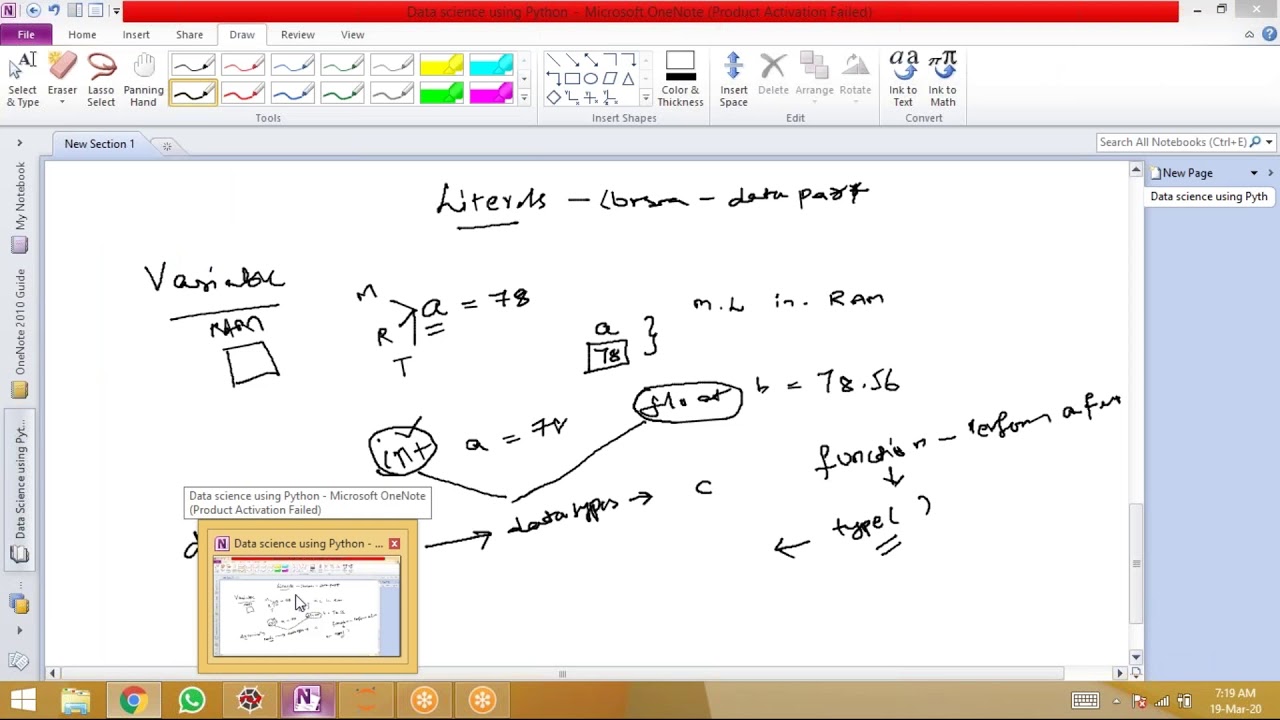 Data science using Python - Microsoft OneNote (Product Activation Failed)
File Home Insert Share Draw Review View
Select & Type
Eraser
Lasso Select
Panning Hand
Color & Thickness
Insert Space
Delete
Arrange
Rotate
Ink to Text
Ink to Math
Tools
Insert Shapes
Edit
Convert
New Section 1
Search All Notebooks (Ctrl+E)
My Notebook
OneNote 2010 Guide
Data Science using Py...
New Page
Data science using Pyth
Literals - - data part
Variable
RAM
M
R
T
a = 78
a
78
m.L in. RAM
int a = 78
float b = 78.56
function - Perform a fun
datatypes → C
type( )
Data science using Python - Microsoft OneNote
(Product Activation Failed)
Data science using Python - ...
7:19 AM
19-Mar-20